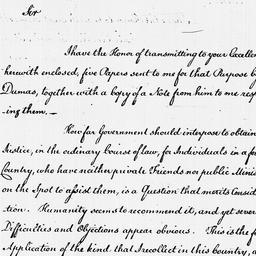 Sir
I have the Honor of transmitting to your Excellen
herewith enclosed, five Papers sent to me for that Purpose by
Dumas, together with a Copy of a Note from him to me resp
ing them. —
How far Government should interpose to obtain
Justice, in the ordinary Course of law, for Individuals in a fo
Country, who have neither private Friends nor public Minis
on the Spot to assist them, is a Question that merits Consid
tion. Humanity seems to recommend it, and yet sever
Difficulties and Objections appear obvious. This is the f
Application of the kind that I recollect in this Country, a